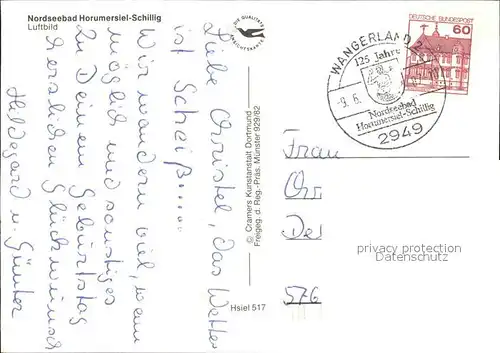 Nordseebad Horumersiel-Schillig
Luftbild
DIE QUALITÄTS
ANSICHTSKARTE
Liebe Christel, das Wetter
ist Scheiß.....
Wir wandern viel, wenn
möglich und sonstiges
Zu Deinem Geburtstag
herzlichen Glückwunsch
Hildegard u. Günter
© Cramers Kunstanstalt Dortmund
Freigeg. d. Reg.-Präs. Münster 929/82
Hsiel 517
DEUTSCHE BUNDESPOST
60
WANGERLAND 2
125 Jahre
-9.6.
Nordseebad
Horumersiel-Schillig
2949
Frau
Chr
Des
576
privacy protection
Datenschutz